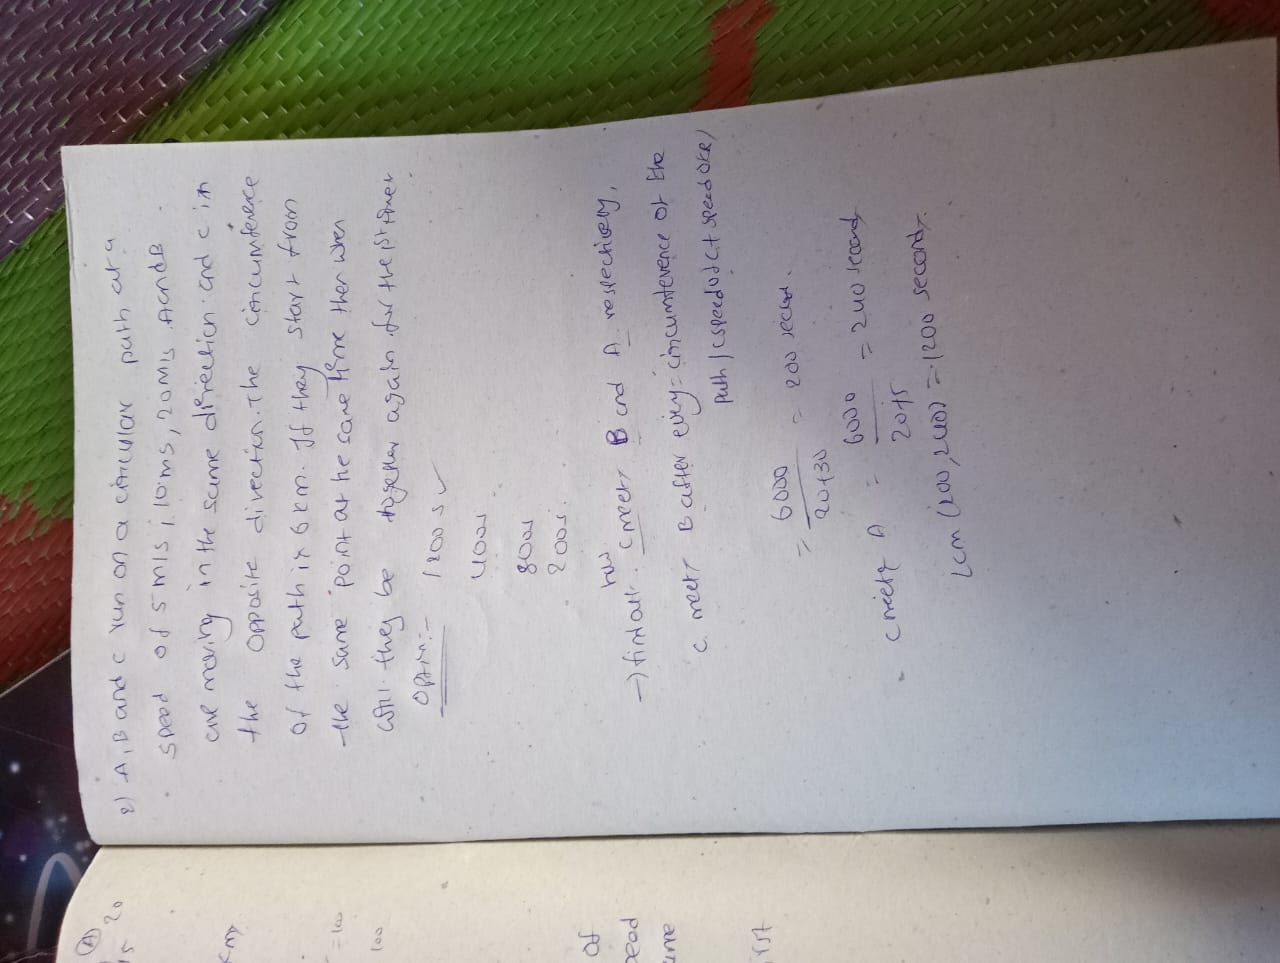 2) A, B and C run on a circular path at a
speed of 5 m/s, 10 m/s, 20 m/s. A and B
are moving in the same direction and C in
the opposite direction. The circumference
of the path is 6 km. If they start from
the same point at the same time then when
will they be together again for the 1st time?
Optn:- 1200 s ✓
400s
800s
200s.
→) find out how C meet B and A respectively,
C meet B after every = circumference of the
path / (speed of C + speed of R)
= 6000 / 20+30 = 200 second.
C meets A = 6000 / 20+5 = 240 second
LCM (200, 240) = 1200 seconds.
(A)
15 20
= 100
100
of
peed
ame
irst